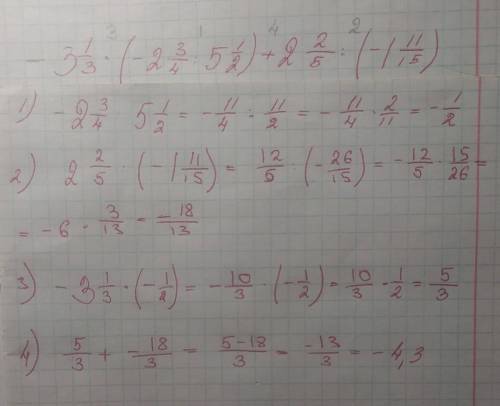 3 1 4 2
- 3 1/3 · (-2 3/4 : 5 1/2) + 2 2/5 : (-1 11/15)
1) -2 3/4 5 1/2 = - 11/4 : 11/2 = - 11/4 · 2/11 = - 1/2
2) 2 2/5 · (-1 11/15) = 12/5 · (- 26/15) = - 12/5 · 15/26 =
= -6 · 3/13 = -18/13
3) -3 1/3 · (- 1/2) = - 10/3 · (- 1/2) = 10/3 · 1/2 = 5/3
4) 5/3 + -18/3 = 5-18/3 = -13/3 = -4,3